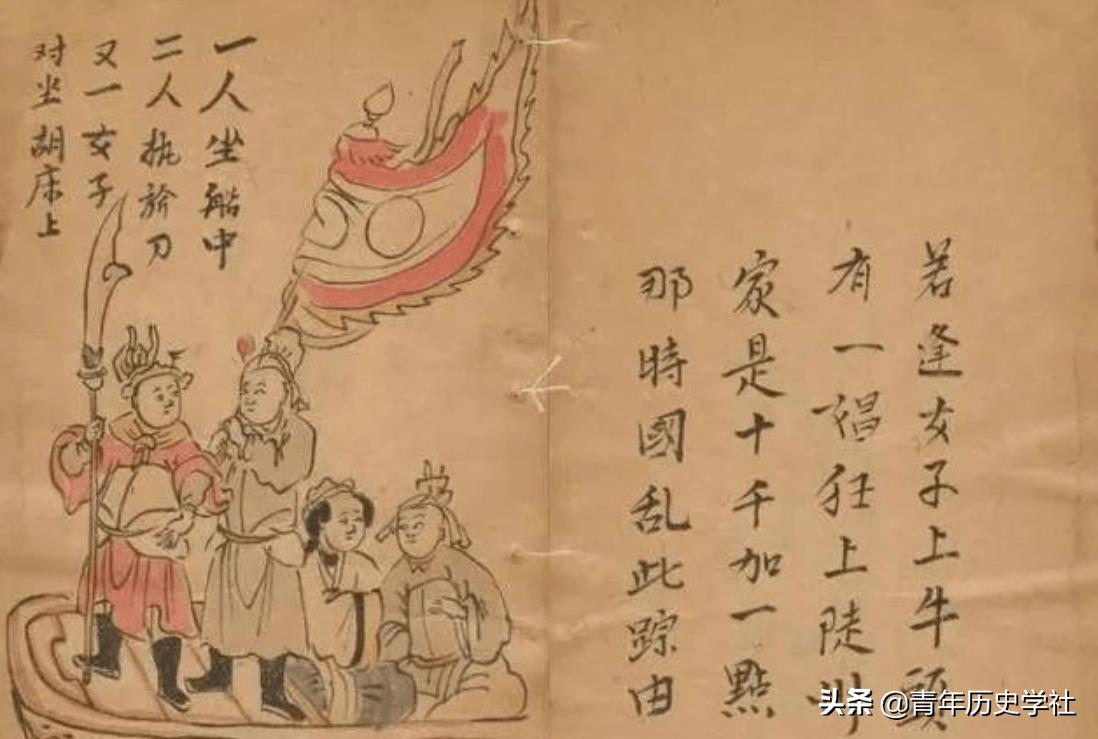 若逢女子上牛頭
有一猖狂上陡州
家是十千加一點
那時國乱此踪由
一人坐船中
二人执於刀
又一女子
对坐胡床上
头条 @青年历史学社